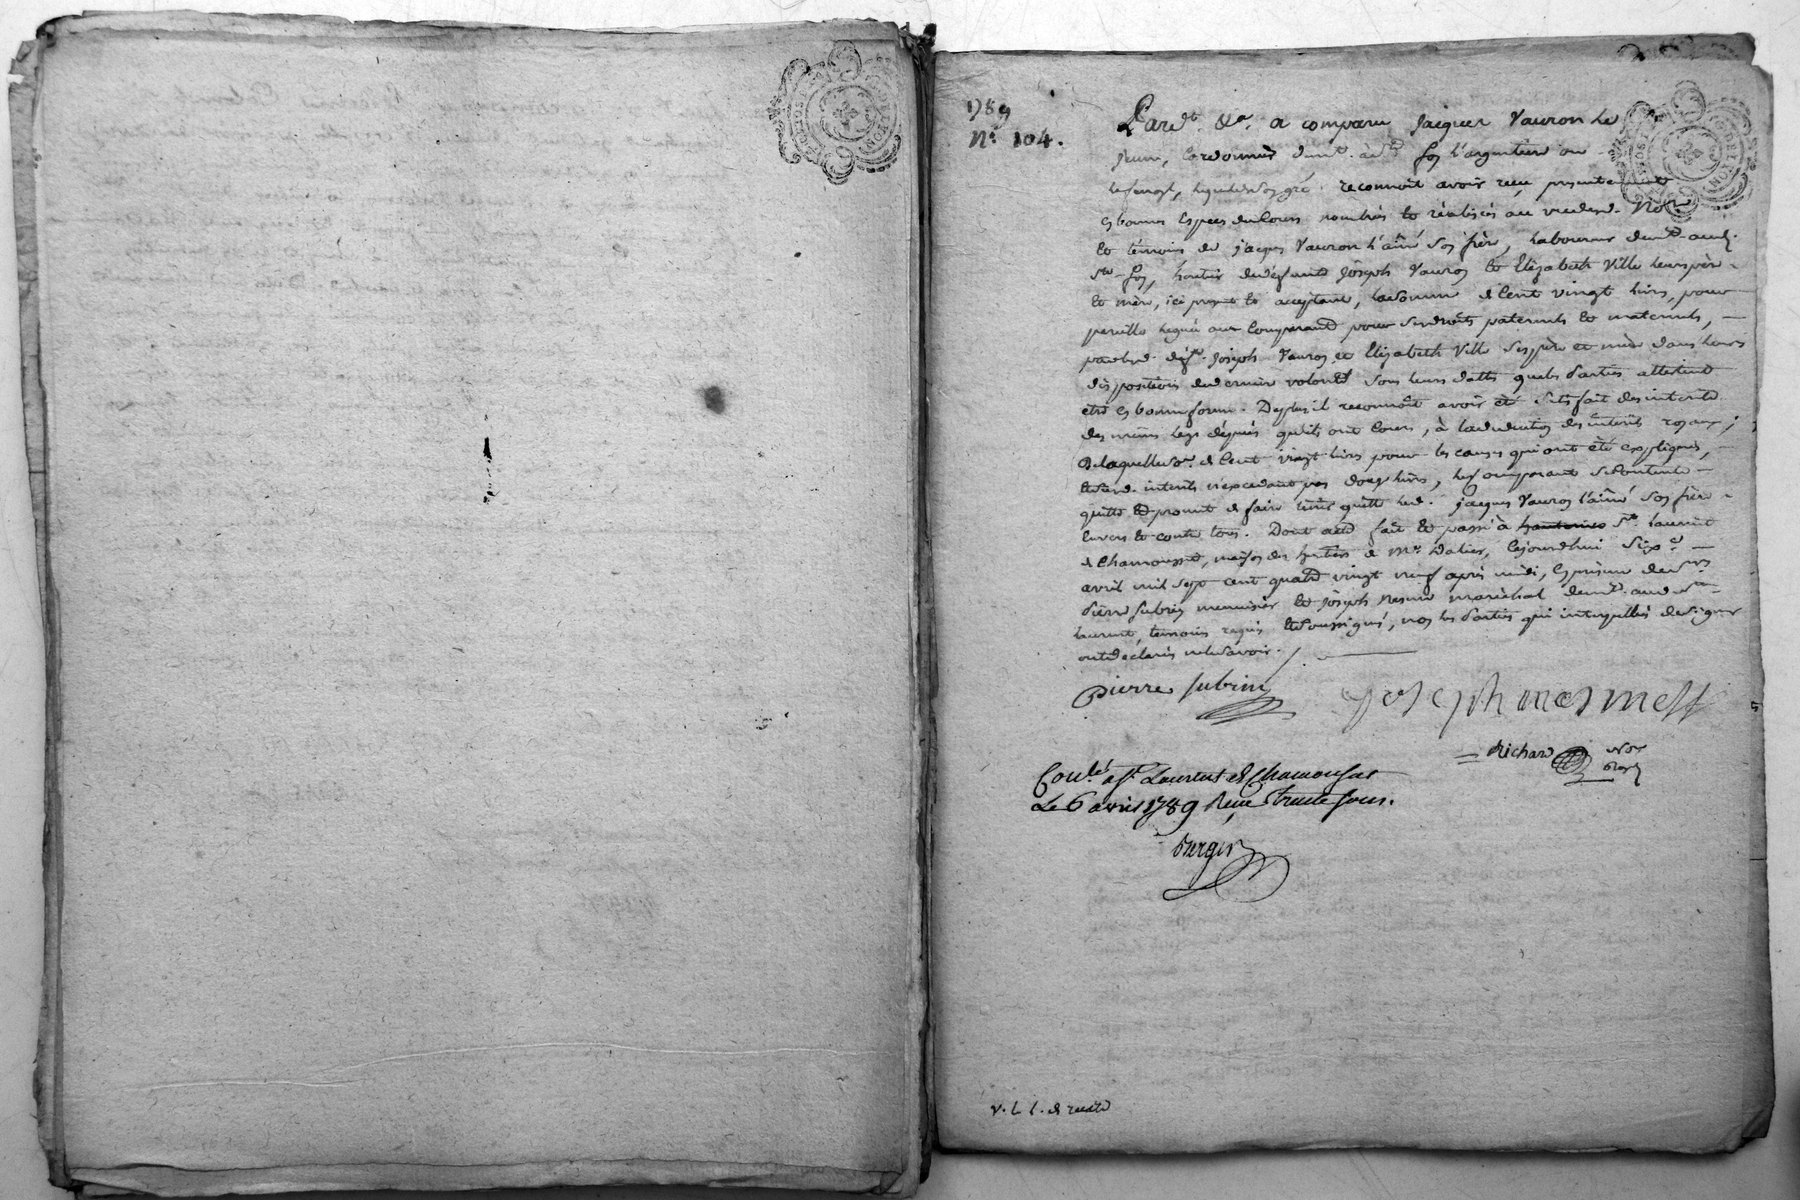 1789
N.° 104.
Pard.t &a. a comparu Jacques Vauron le
jeune, Cordonnier dem.t à S.te foy l'argentiere ou
lequel de son gré reconnoit avoir reçu presentement
en bonnes Especes du Cours nombrées et réalisées au vu de Nore
et témoins de jacques Vauron l'aîné son frère, laboureur dem.t aud.
ste foy, heritier de défunts Joseph Vauron et Elizabeth Ville leurs père
et mère, ici present et acceptant, la somme de Cent vingt livres, pour
pareille leguée au Comparant pour ses droits paternels et maternels,
par lesd. déf.ts Joseph Vauron et Elizabeth Ville ses père et mère dans leurs
dispositions de dernière volonté sous leurs dattes que les Parties attestent
être en bonne forme. De plus il reconnoit avoir été satisfait des interets
des mêmes legs depuis qu'ils ont cours, à la deduction des interêts royaux ;
De laquelle so.e de Cent vingt livres pour les causes qui ont été expliquées,
lesd. interêts n'excedant pas douze livres, le Comparant se Contente
quitte et promet de faire tenir quitte led. jacques Vauron l'aîné son frère
Envers et contre tous. Dont acte fait et passé à S.t laurent
de Chamousset, maison des heritiers de Mr. Dalier, Cejourdhui Six
avril mil sept cent quatre vingt neuf après midi, En présence de srs
Pierre Subrin menuisier et Joseph Mesme maréchal dem.t aud. St
laurent, témoins requis Et Soussignés, non les Parties qui interpellées de signer
ont declarés ne le savoir.
Pierre Subrin
Richard Nore
Royal
Con.lé a St. Laurent de Chamousset
Le 6 avril 1789 Reçu trente sous.
v. L l. de recette